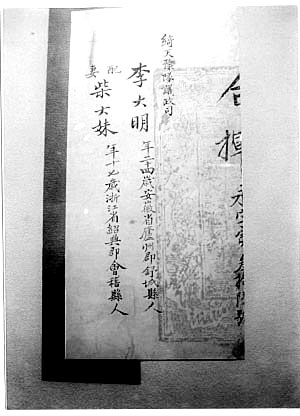 合揮
綺天豫隊議政司
李大明 年二十四歲安徽省廬州郡舒城縣人
配妻 柴大妹 年十九歲浙江省紹興郡會稽縣人